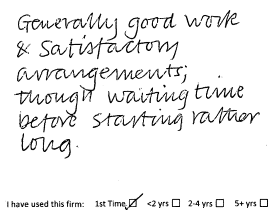 Generally good work
& satisfactory
arrangements;
though waiting time
before starting rather
long.
I have used this firm: 1st Time ☑ <2 yrs ☐ 2-4 yrs ☐ 5+ yrs ☐